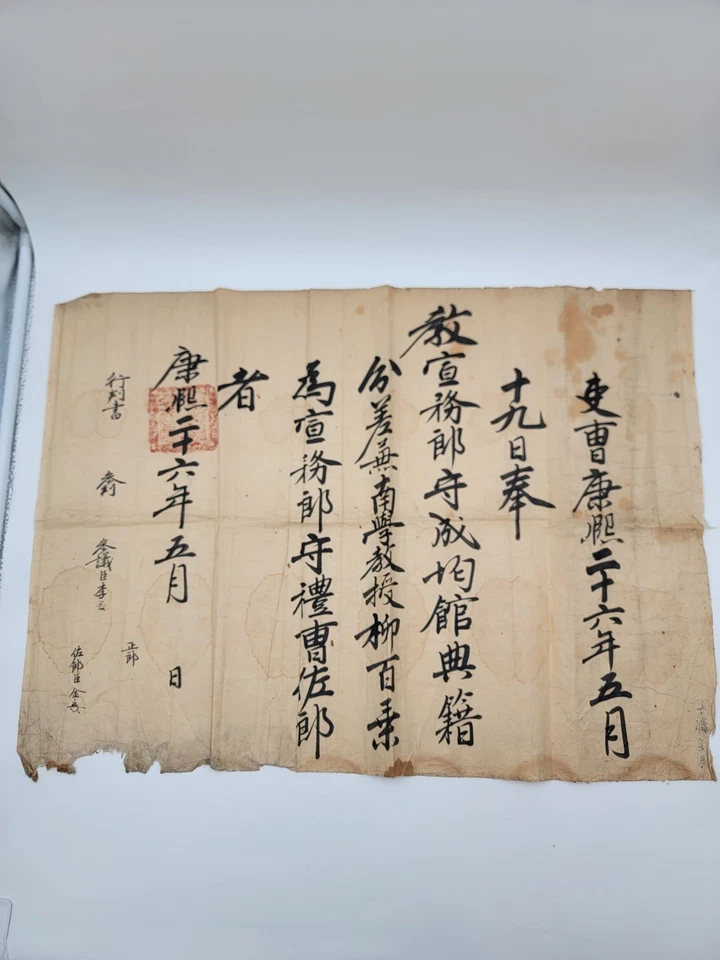 吏曺康熙二十六年五月
十九日奉
教宣務郎守成均館典籍
分差兼南學教授柳百乗
為宣務郎守禮曺佐郎
者
康熙二十六年五月 日
行判書
參判
參議臣李
正郎
佐郎臣金